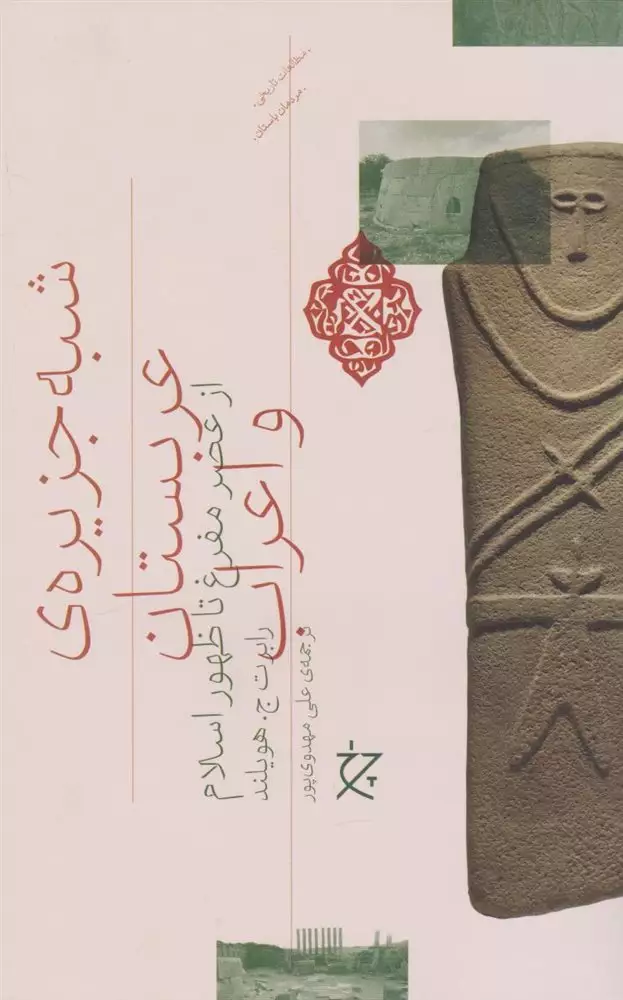 مطالعات تاریخی.
مردمان باستان.
شبه جزیره‌ی
عربستان
و اعراب
از عصر مفرغ تا ظهور اسلام
رابرت ج. هویلند
ترجمه‌ی علی مهدوی‌پور